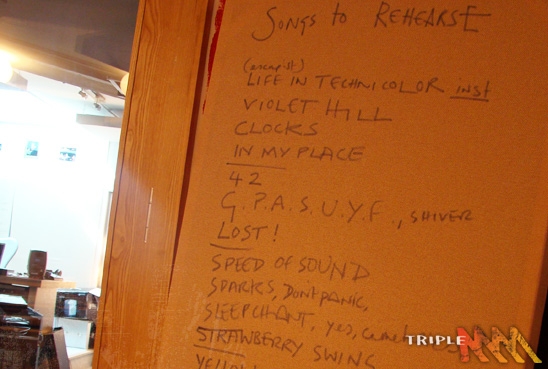 SONGS to REHEARSE
(escapist)
LIFE IN TECHNICOLOR inst
VIOLET HILL
CLOCKS
IN MY PLACE
42
G.P.A.S.U.Y.F, SHIVER
LOST!
SPEED OF SOUND
SPARKS, DONT PANIC,
SLEEPCHANT, yes,
STRAWBERRY SWING
TRIPLE M